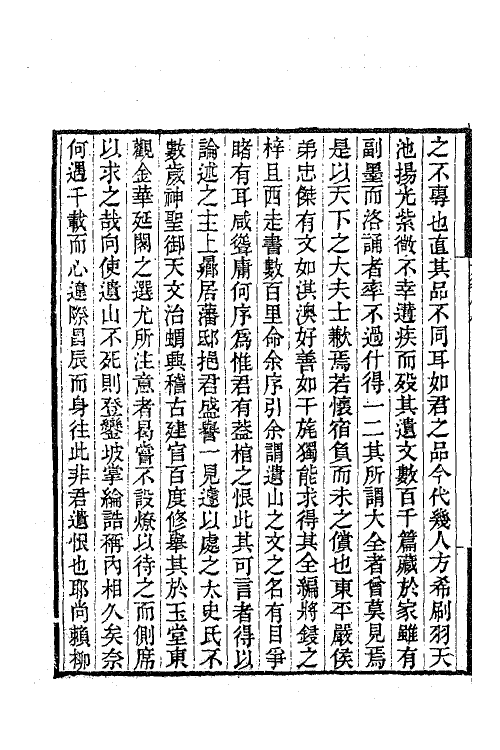 之不專也直其品不同耳如君之品今代幾人方希刷羽天
池揚光紫微不幸遘疾而歿其遺文數百千篇藏於家雖有
副墨而洛誦者率不過什得一二其所謂大全者曾莫見焉
是以天下之大夫士歉焉若懷宿負而未之償也東平嚴侯
弟忠傑有文如淇澳好善如干旄獨能求得其全編將鋟之
梓且西走書數百里命余序引余謂遺山之文之名有目爭
睹有耳咸聳庸何序爲惟君有葢棺之恨此其可言者得以
論述之主上曏居藩邸挹君盛譽一見遽以處之太史氏不
數歲神聖御天文治蝟興稽古建官百度修舉其於玉堂東
觀金華延閣之選尤所注意者曷嘗不設燎以待之而側席
以求之哉向使遺山不死則登鑾坡掌綸誥稱內相久矣奈
何遇千載而心違際昌辰而身往此非君遺恨也耶尚賴柳